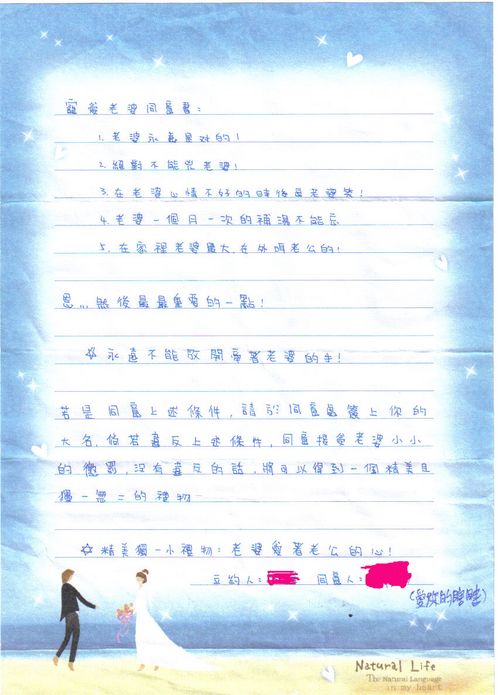 寵愛老婆同意書:
1.老婆永遠是對的!
2.絕對不能兇老婆!
3.在老婆心情不好的時後逗老婆笑!
4.老婆一個月一次的補湯不能忘
5.在家裡老婆最大,在外唷老公的!
恩...然後最最重要的一點!
☆永遠不能放開愛著老婆的手!
若是同意上述條件,請於同意處簽上你的
大名.倘若違反上述條件,同意接受老婆小小
的懲罰,沒有違反的話,將可以得到一個精美且
獨一無二的禮物
☆精美獨一小禮物:老婆愛著老公的心!
立約人: 同意人:
Natural Life
The Natural Language
in my heart